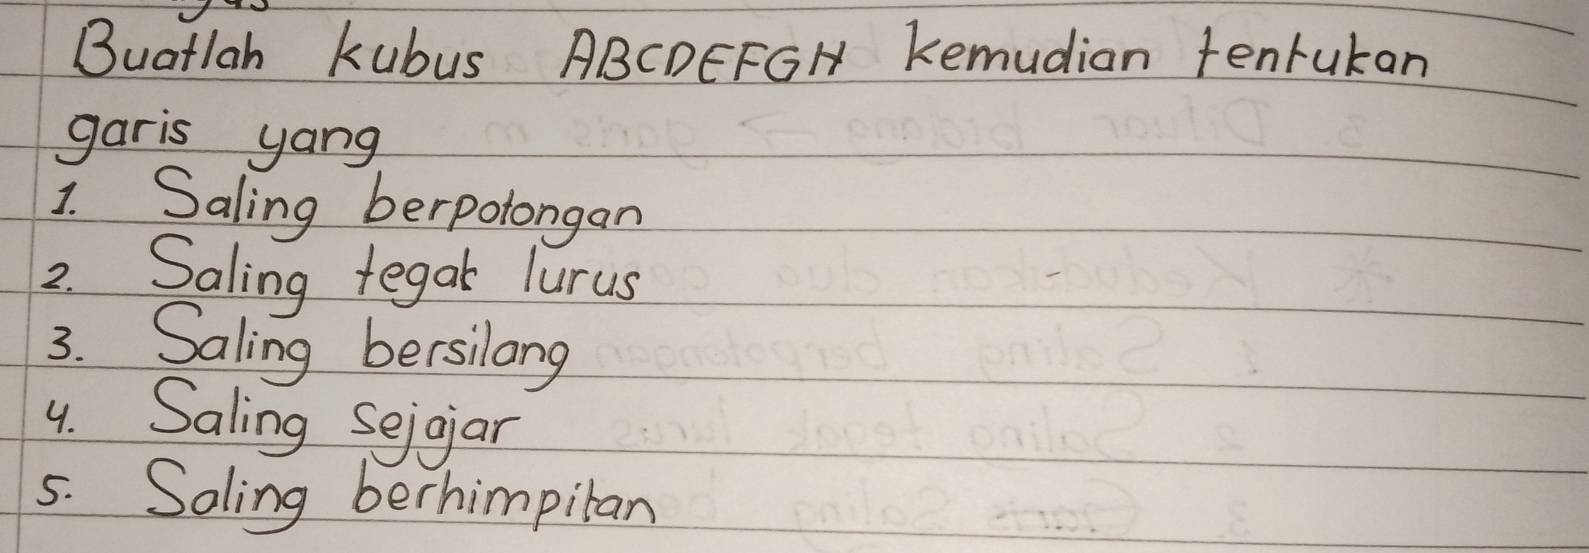 Buatlah kubus ABCDEFGH kemudian tentukan
garis yang
1. Saling berpotongan
2. Saling tegak lurus
3. Saling bersilang
4. Saling sejajar
5. Saling berhimpitan